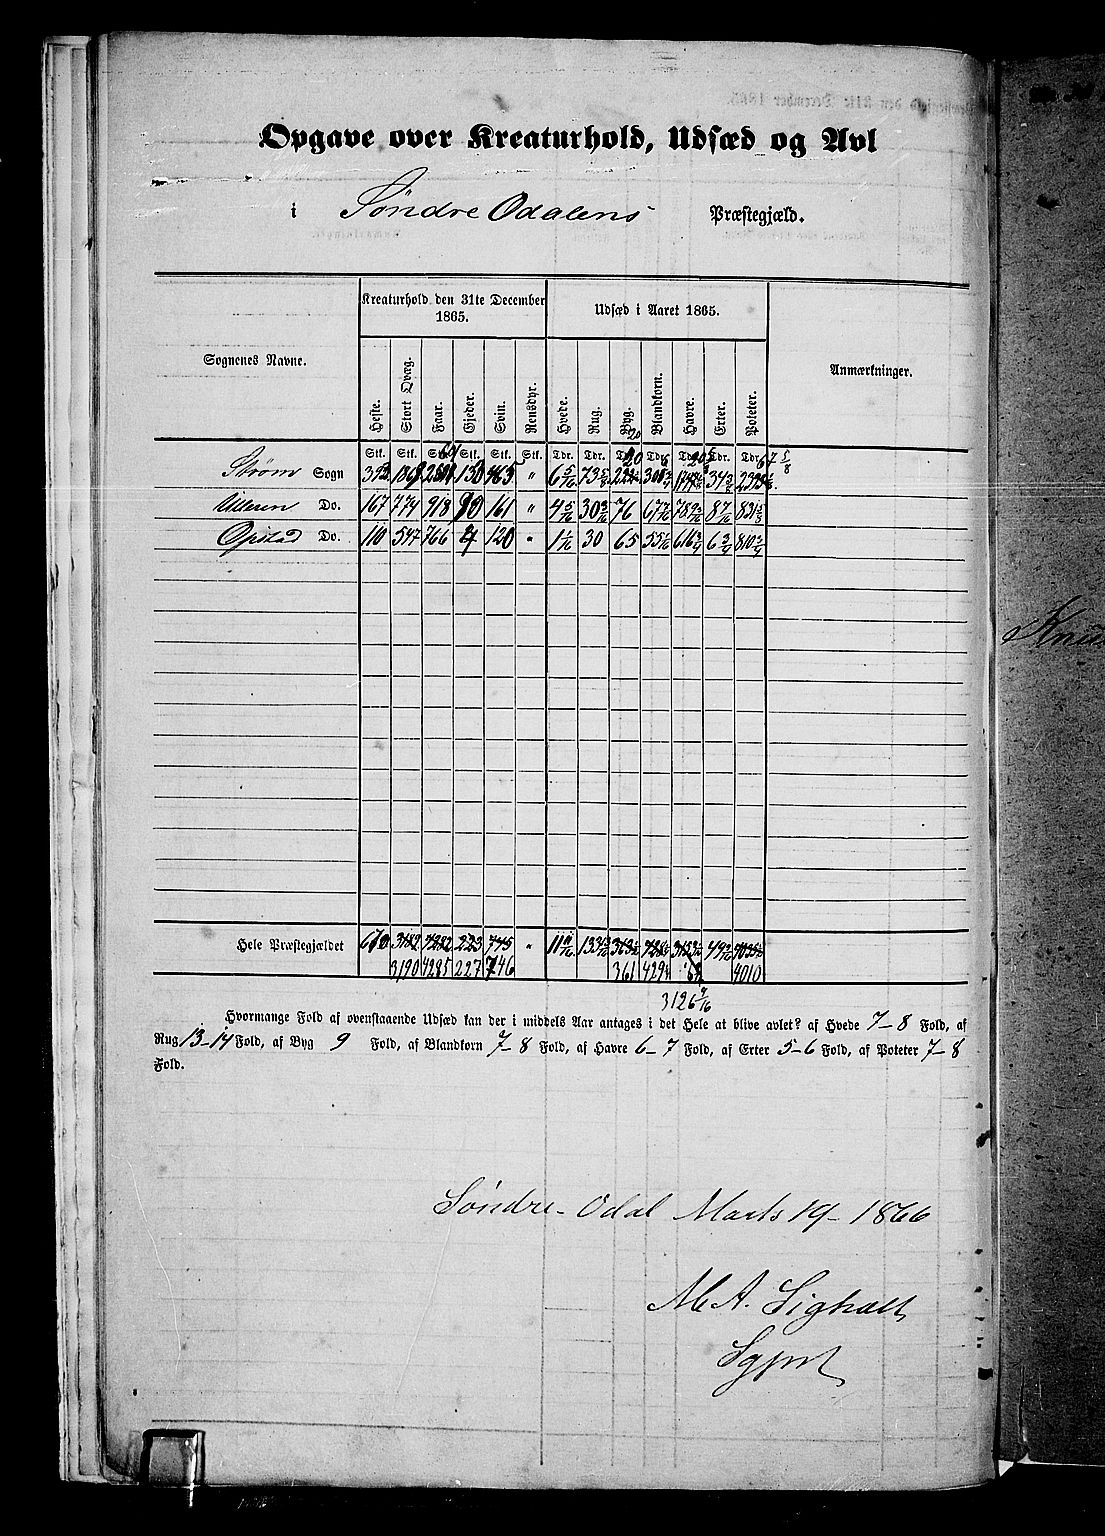 Opgave over Kreaturhold, Udsæd og Avl
i Søndre Odalens Præstegjæld.
Sognenes Navne. Kreaturhold den 31te December 1865. Udsæd i Aaret 1865. Anmærkninger.
Heste. Stort Qvæg. Faar. Gjeder. Svin. Rensdyr. Hvede. Rug. Byg. Blandkorn. Havre. Erter. Poteter.
Stk. Stk. Stk. Stk. Stk. Stk. Tdr. Tdr. Tdr. Tdr. Tdr. Tdr. Tdr.
Strøm Sogn 130 465 " 6 5/16 73 5/8
Ulleren Do. 167 774 918 90 161 " 4 5/16 30 3/16 76 67 7/16 789 3/16 8 7/16 831 5/8
Opstad Do. 110 547 766 4 120 " 1 1/16 30 65 55 1/16 616 3/4 6 3/4 810 3/4
Hele Præstegjældet 3182 4282 223 745 " 11 11/16 133 13/16
3190 4285 227 746 361 4010
3126 9/16
Hvormange Fold af ovenstaaende Udsæd kan der i middels Aar antages i det Hele at blive avlet? af Hvede 7-8 Fold, af
Rug 13-14 Fold, af Byg 9 Fold, af Blandkorn 7-8 Fold, af Havre 6-7 Fold, af Erter 5-6 Fold, af Poteter 7-8
Fold.
Søndre-Odal Marts 19-1866